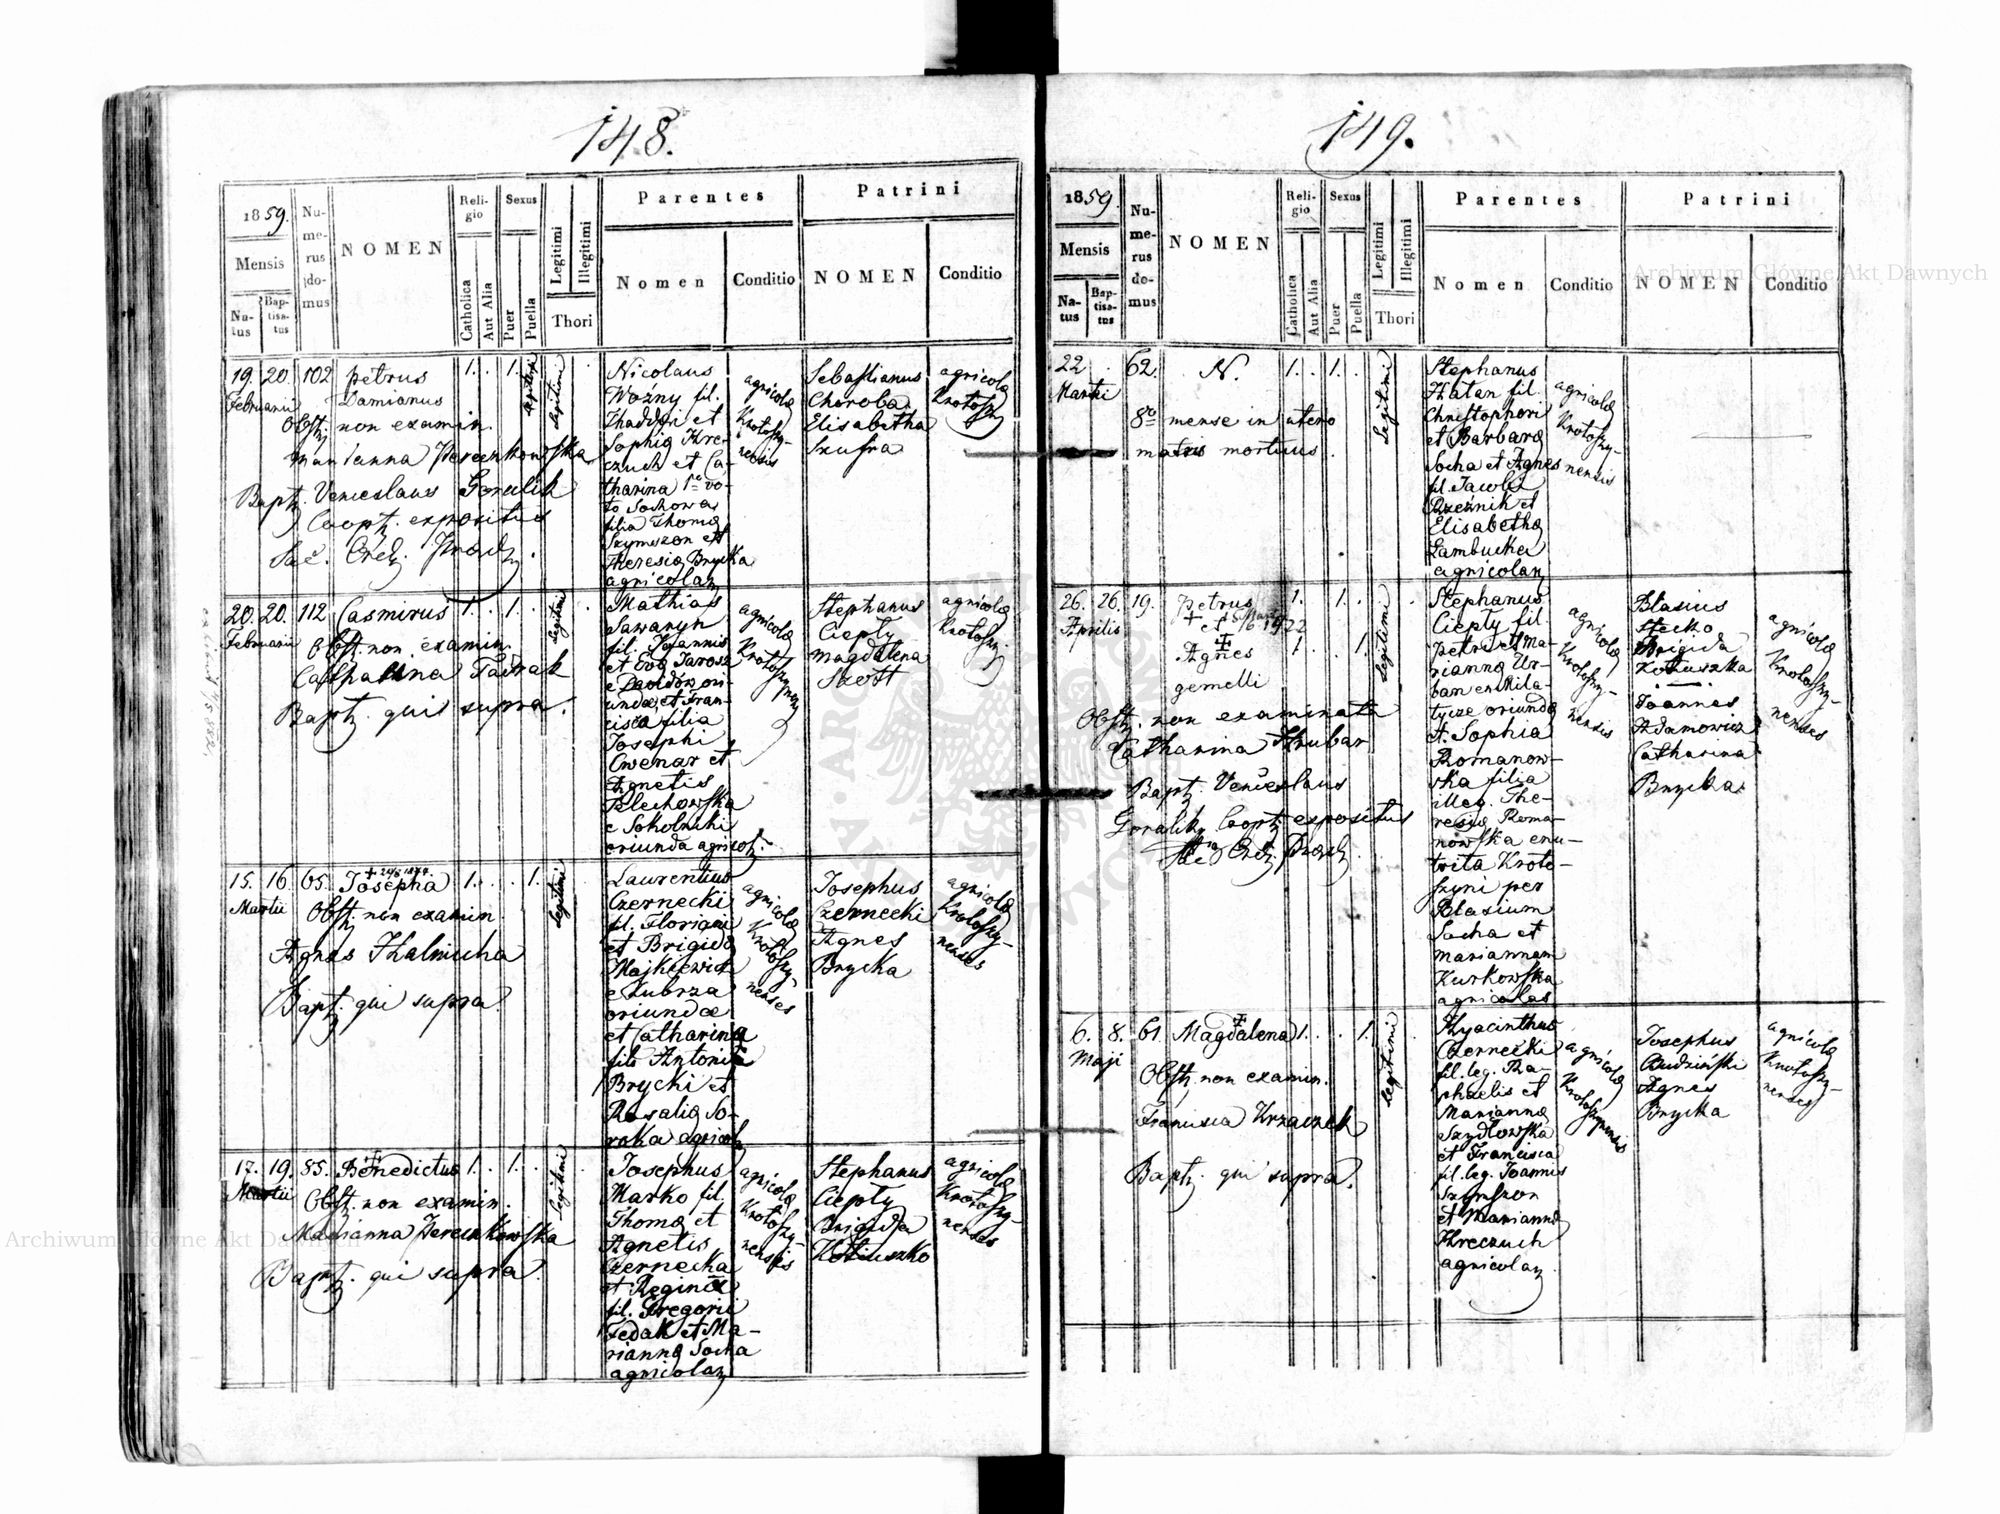 148.
1859.
Mensis
Na-
tus
Bap-
tisa-
tus
Nu-
me-
rus
do-
mus
NOMEN
Reli-
gio
Catholica
Aut Alia
Sexus
Puer
Puella
Legitimi
Illegitimi
Thori
Parentes
Nomen
Conditio
Patrini
NOMEN
Conditio
19. 20. 102 Petrus 1. 1.
Februarii Damianus
Obst. non examin.
Marianna Pereczkowska
Bapt. Venceslaus Goralik
Coopt. expositus
legitimi
Nicolaus
Woźny fil.
Thaddei et
Sophia Kre-
czuch et Ca-
tharina 1o vo-
to Sochowa
filia Thoma
Szymszon et
Theresia Brycka
agricolar
agricola
Krotoszy-
nensis
Sebastianus
Choroba
Elisabetha
Szufra
agricola
Krotoszy
20. 20. 112 Casmirus 1. 1.
Februarii Obst. non examin.
Catharina Fadrak
Bapt. qui supra.
legitimi
Mathias
Sawaryn
fil. Joannis
et Eva Jarosz
e Dawidów ori-
unda et Fran-
cisca filia
Josephi
Cwenar et
Agnetis
Pelechowska
e Sokolniki
oriunda agricol.
agricola
Krotoszynens
Stephanus
Ciepły
Magdalena
Szott
agricola
Krotoszy.
15. 16. 65. Josepha 1. 1.
Martii Obst. non examin.
Agnes Halnicha
Bapt. qui supra.
legitimi
Laurentius
Czernecki
fil. Floriani
et Brigida
Majkiewicz
e Zubrza
oriunda
et Catharina
filia Antonii
Brycki et
Rosalia So-
roka agricol.
agricola
Krotoszy-
nenses
Josephus
Czernecki
Agnes
Brycka
agricola
Krotoszy-
nenses
17. 19. 85. Benedictus 1. 1.
Martii Obst. non examin.
Marianna Pereczkowska
Bapt. qui supra.
legitimi
Josephus
Marko fil.
Thoma et
Agnetis
Czernecka
et Regina
fil. Gregorii
Fedak et Ma-
rianna Socha
agricolar
agricola
Krotoszy-
nensis
Stephanus
Ciepły
Brigida
Kotiuszko
agricola
Krotoszy-
nenses
149.
1859.
Mensis
Na-
tus
Bap-
tisa-
tus
Nu-
me-
rus
do-
mus
NOMEN
Reli-
gio
Catholica
Aut Alia
Sexus
Puer
Puella
Legitimi
Illegitimi
Thori
Parentes
Nomen
Conditio
Patrini
NOMEN
Conditio
22 62. N. 1. 1.
Martii
8o mense in utero
matris mortuus.
legitimi
Stephanus
Hatan fil.
Christophori
et Barbara
Socha et Agnes
fil. Jacobi
Rzeźnik et
Elisabetha
Łambucka
agricolar
agricola
Krotoszy-
nensis
26. 26. 19. Petrus 1. 1.
Aprilis et
Agnes 1. 1.
gemelli
Obst. non examinata
Catharina Hrubar
Bapt. Venceslaus
Goralik Coopt. expositus
legitimi
Stephanus
Ciepły fil.
Petri et Ma-
rianna Ur-
ban en Mila-
tycze oriunda
et Sophia
Romanow-
ska filia
illeg. The-
resia Roma-
nowska enu-
trita Kroto-
szyni per
Blasium
Socha et
Mariannam
Kurkowska
agricolas
agricola
Krotoszy-
nensis
Blasius
Stecko
Brigida
Kotuszka
Joannes
Adamowicz
Catharina
Brycka
agricola
Krotoszy-
nenses
6. 8. 61. Magdalena 1. 1.
Maji
Obst. non examin.
Francisca Krzaczek
Bapt. qui supra.
legitimi
Hyacinthus
Czernecki
fil. leg. Ra-
phaelis et
Marianna
Szydłowska
et Francisca
fil. leg. Joannis
Szymszon
et Marianna
Hreczuch
agricolar
agricola
Krotoszynensis
Josephus
Budziński
Agnes
Brycka
agricola
Krotoszy-
nenses
Archiwum Główne Akt Dawnych
Archiwum Główne Akt Dawnych